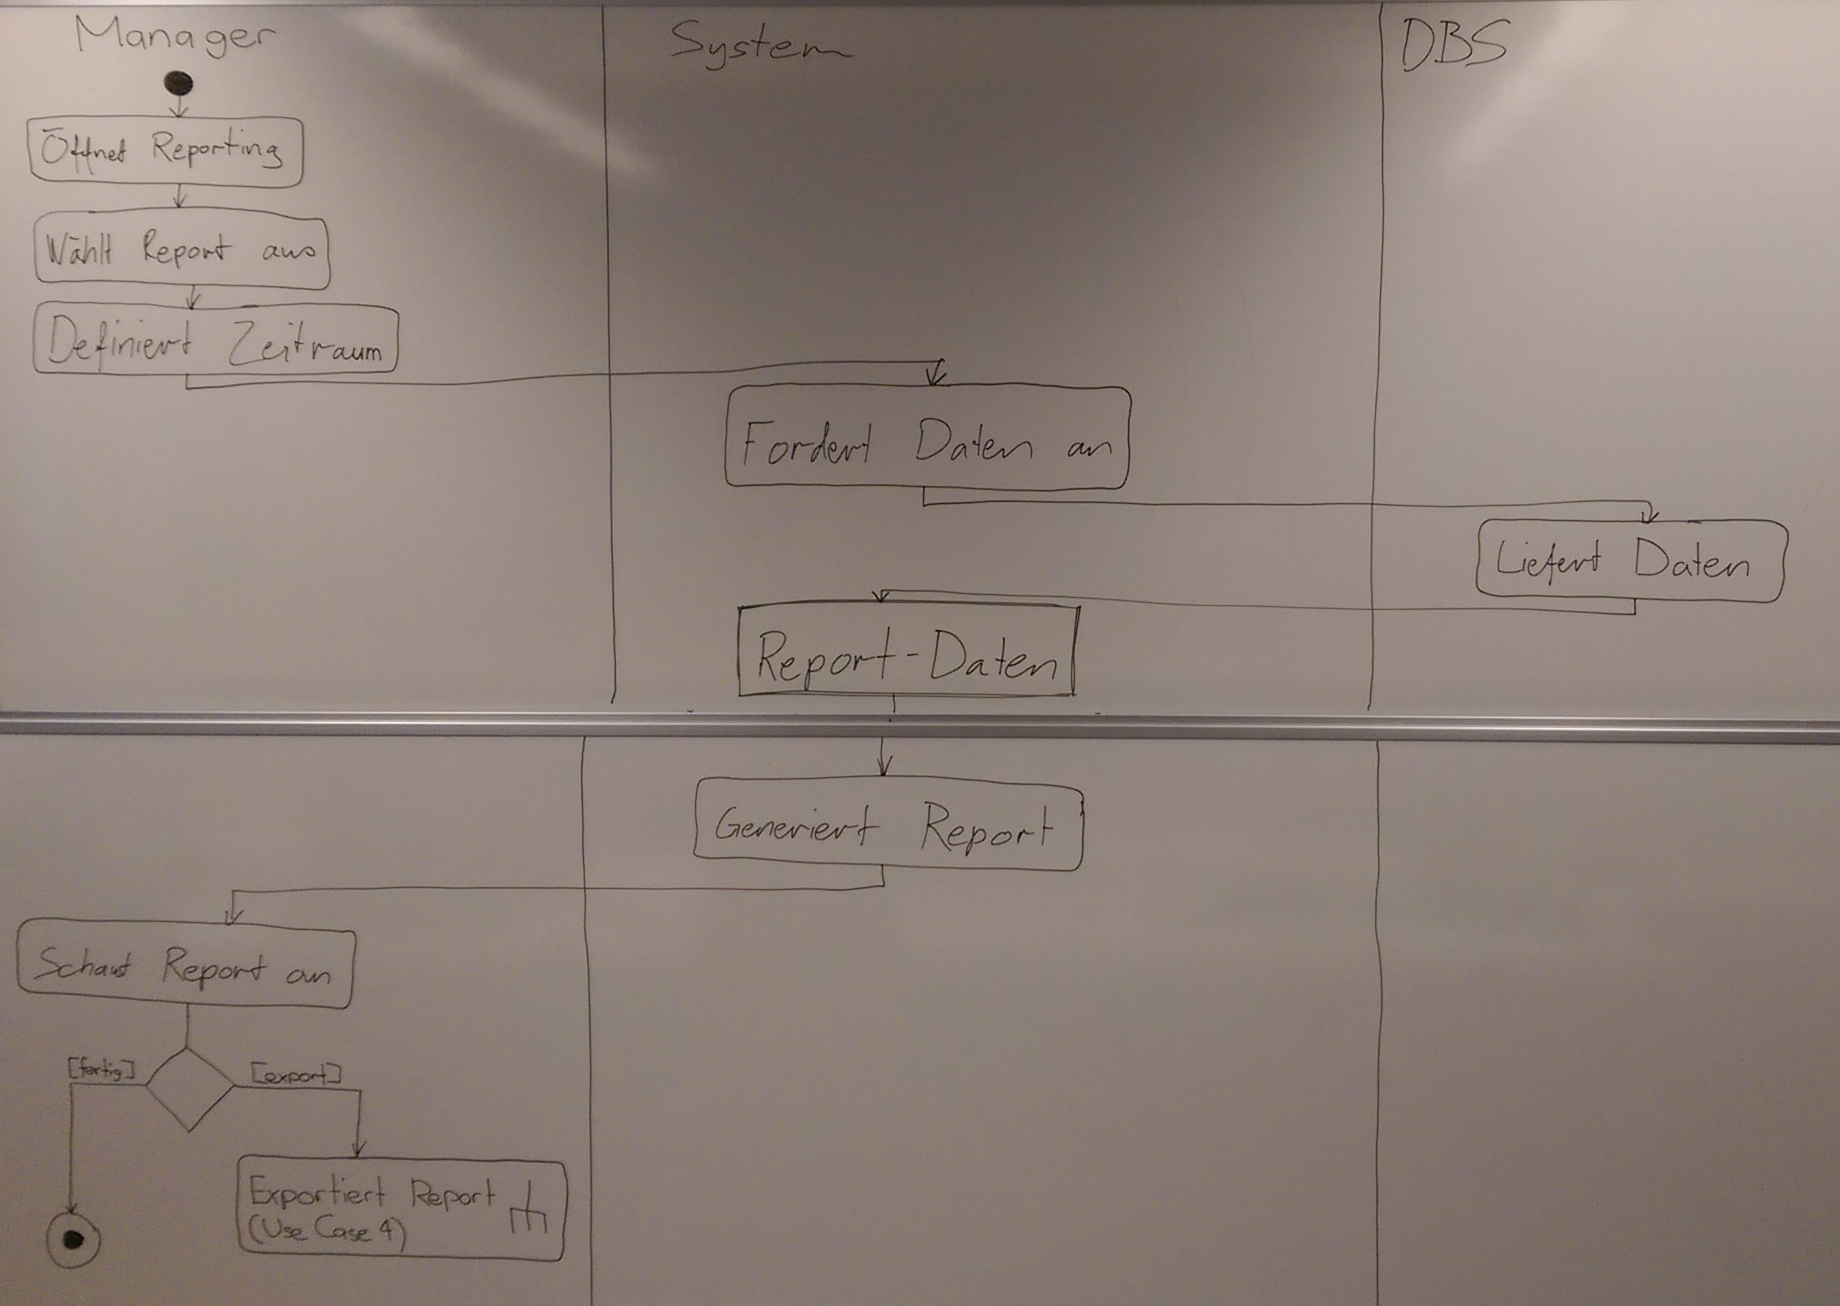 Manager
System
DBS
Öffnet Reporting
Wählt Report aus
Definiert Zeitraum
Fordert Daten an
Liefert Daten
Report-Daten
Generiert Report
Schaut Report an
[fertig]
[export]
Exportiert Report
(Use Case 4)